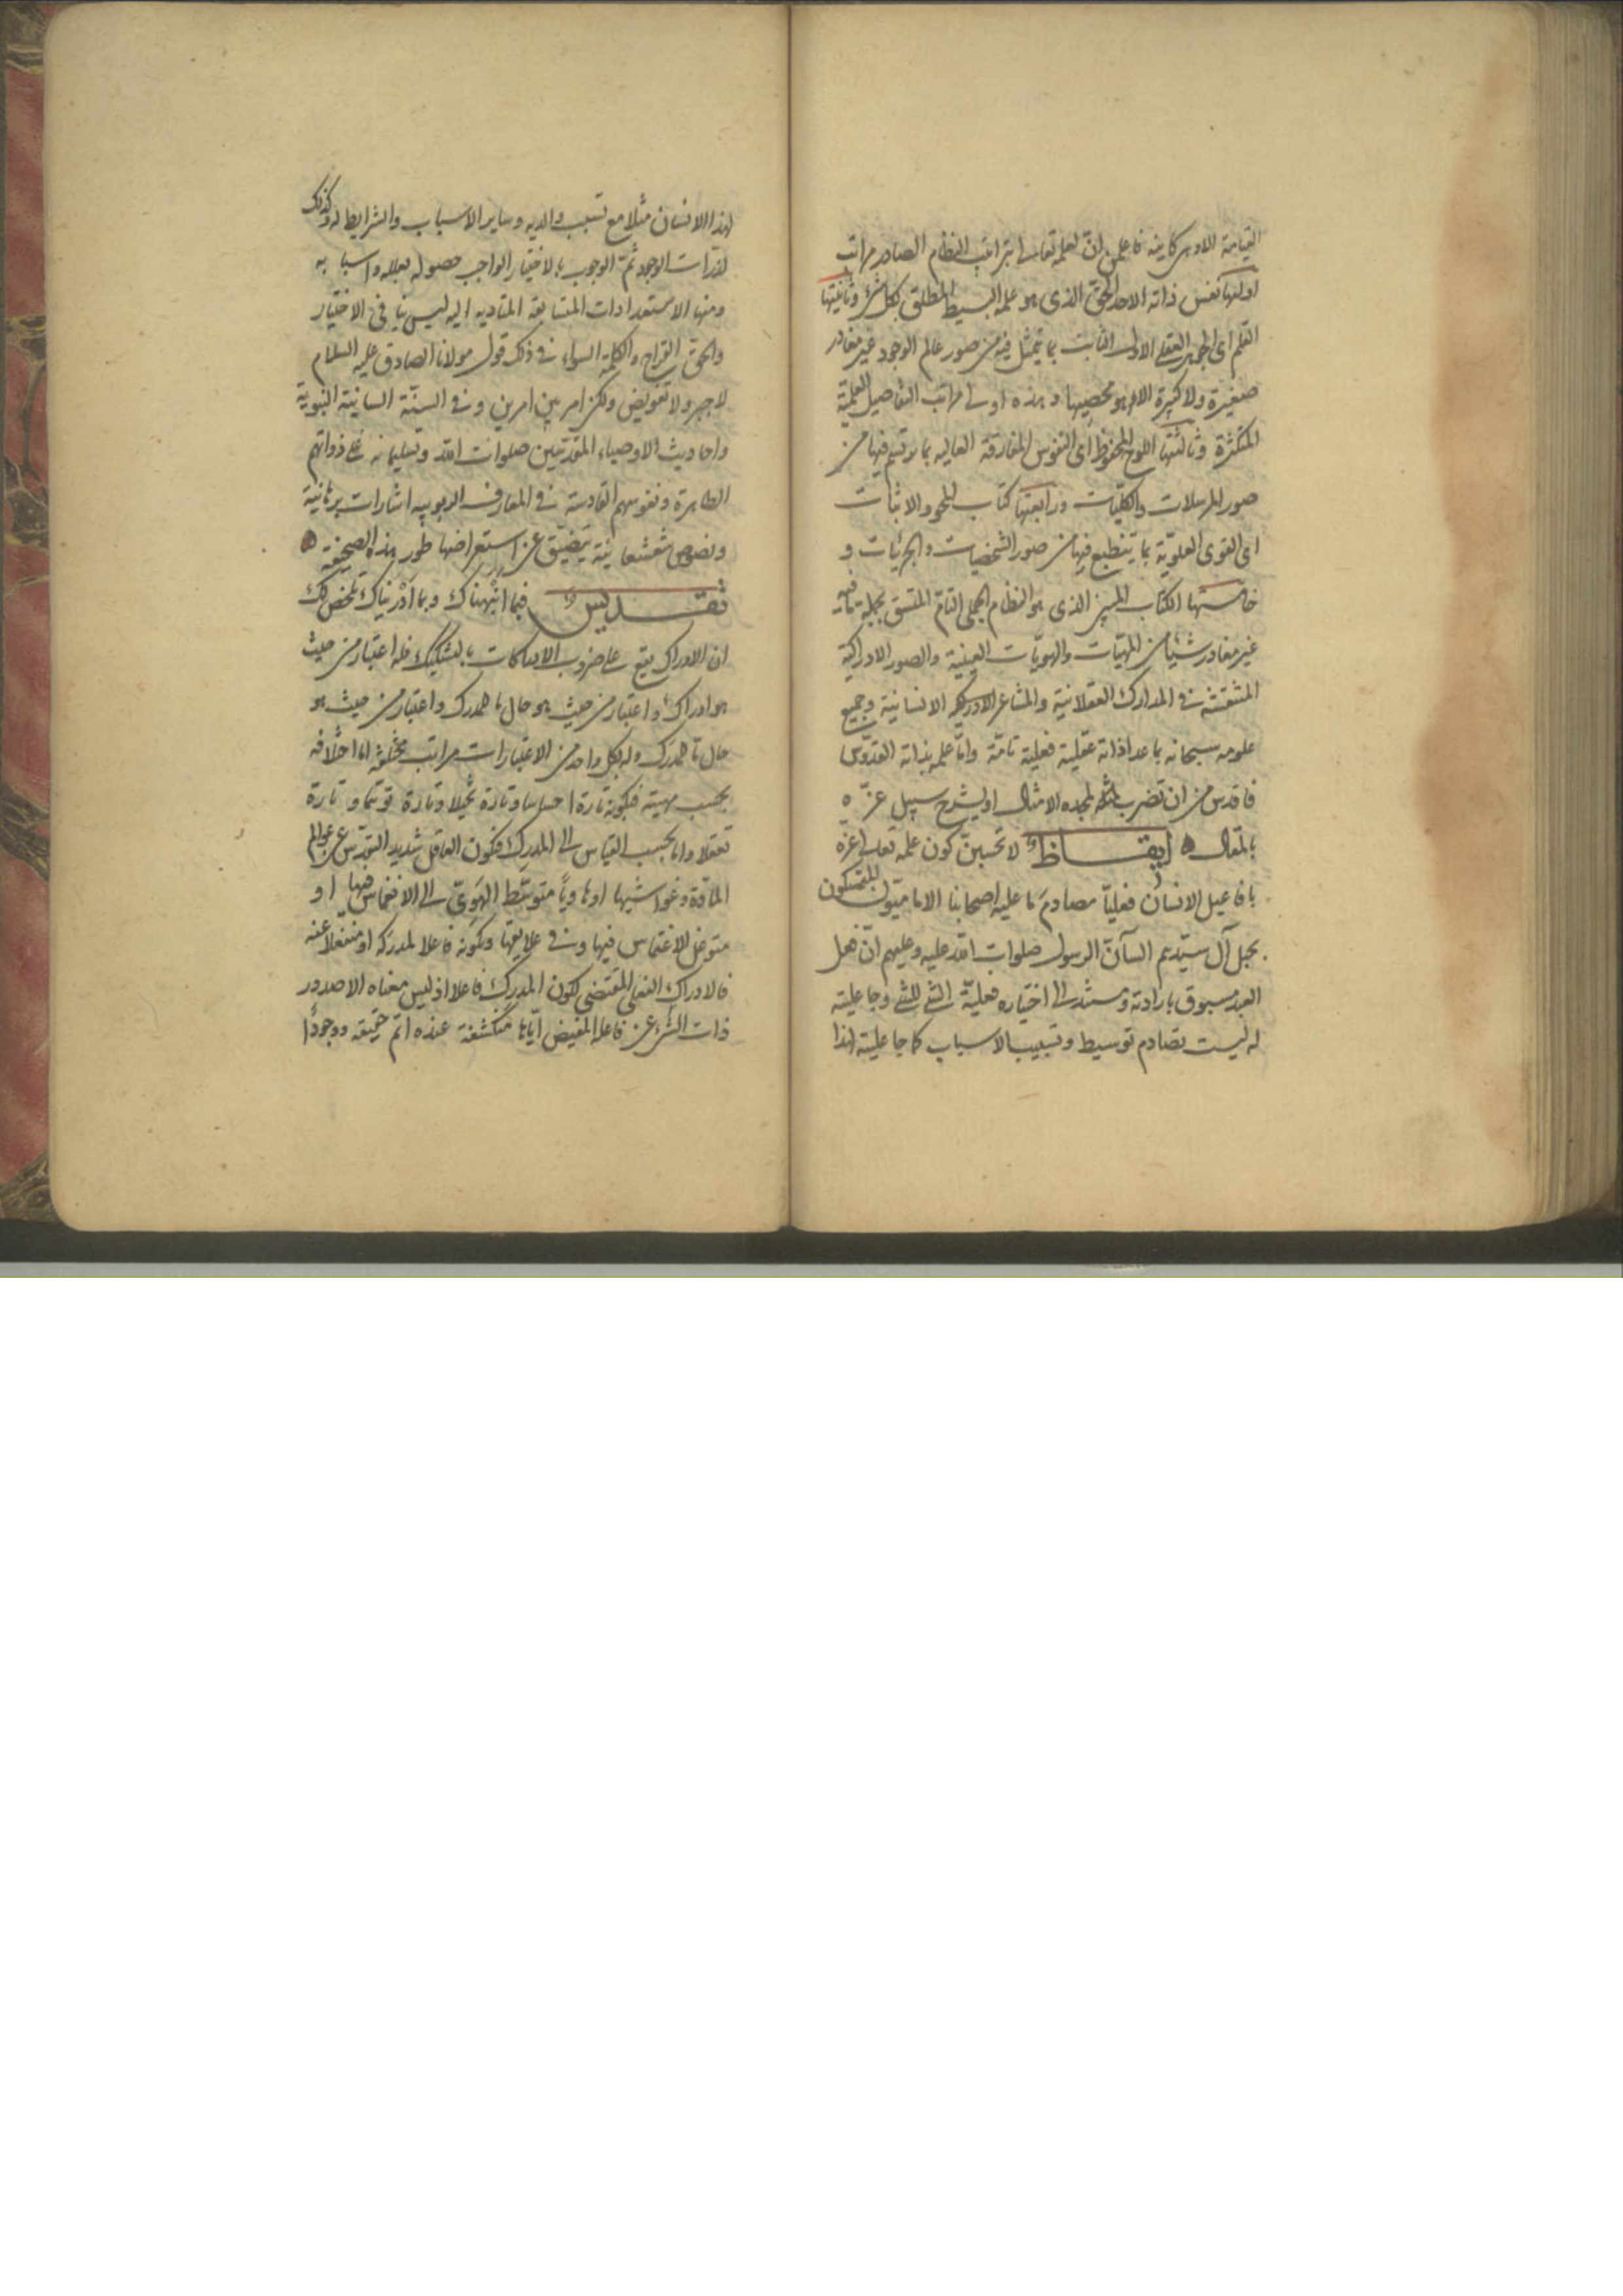 القيامة الاولى كاينه فاعلمن ان لعلمه تعالى بترتب النظام الصادر مراتب
اولتها نفس ذاته الاحد الحق الذى هو علمه البسيط المطلق بكل شئ وثانيتها
القلم اى الجوهر العقلى الاول الثابت بما يتمثل فيه من صور عالم الوجود غير مغادر
صغيرة ولا كبيرة الا وهو محصيها وهذه اولى مراتب التفاصيل العلمية
المتكثرة وثالثتها اللوح المحفوظ اى النفوس المفارقة العاليه بما يرتسم فيها من
صور المرسلات والكليات ورابعتها كتاب المحو والاثبات
اى القوى العلوية بما ينطبع فيها من صور الشخصيات والجزئيات و
خامستها الكتاب المبين الذى هو النظام الجملى التام المتسق بجملة ما فيه
غير مغادر شيئا من المهيات والهويات العينية والصور الادراكية
المنتقشة فى المدارك العقلانية والمشاعر الادراكية الانسانية وجميع
علومه سبحانه بما عدا ذاته عقلية فعلية تامة واما علمه بذاته القدوس
فاقدس من ان تضرب لمجده الامثال او يشرح سبيل عزه
بالمقال ايقاظ لا تحسبن كون علمه تعالى عزه
بافاعيل الانسان فعليا مصادم ما عليه اصحابنا الاماميون المتمسكون
بحبل آل سيدهم السآن الرسول صلوات الله عليه وعليهم ان فعل
العبد مسبوق بارادته ومستند الى اختياره فعلية الشئ للشئ وجاعلية
له ليست تصادم توسيط وتسبيب الاسباب كما جاعليته لهذا
لهذا الانسان مثلا مع تسبب والديه وساير الاسباب والشرايط له وكذلك
لذرات الوجود ثم الوجوب بالاختيار الواجب حصوله بعلله واسبابه
ومنها الاستعدادات المتسابقة المتاديه اليه ليس ينافى الاختيار
والحق القراح والكلمة السواء فى ذلك قول مولانا الصادق عليه السلام
لا جبر ولا تفويض ولكن امر بين امرين وفى السنة السانية النبوية
واحاديث الاوصياء المقدسين صلوات الله وتسليماته على ذواتهم
الطاهرة ونفوسهم القادسة فى المعارف الربوبيه اشارات برهانية
ونصوص شعشعانية يتضيق عن استعراضها طور هذه الصحيفة
تقديس فبما انبهناك وبما ادريناك تلخص لك
ان الادراك يقع على ضروب الادراكات بالتشكيك فله اعتبار من حيث
هو ادراك واعتبار من حيث هو حال ما للمدرك واعتبار من حيث هو
حال ما للمدرك وله بكل واحد من الاعتبارات مراتب مختلفة اما اختلافه
بحسب مهيته فبكونه تارة احساسا وتارة تخيلا وتارة توهما وتارة
تعقلا واما بحسب القياس الى المدرك فبكون العاقل شديد التقدس عن عوالم
المادة وغواشيها او هاويا متوسط الهوى الى الانغماس فيها او
متوغل الانغماس فيها وفى علايقها وبكونه فاعلا لمدركه او منفعلا عنه
فالادراك الفعلى المقتضى لكون المدرك فاعلا اذ ليس معناه الا صدور
ذات الشئ عن فاعله المفيض اياها منكشفة عنده اتم حقيقة ووجودا